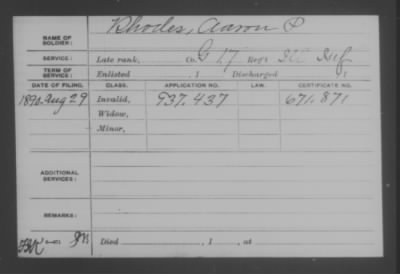 NAME OF SOLDIER: Rhodes, Aaron P
SERVICE: Late rank, Co. G 17 Reg't Ill Inf
TERM OF SERVICE: Enlisted , 1 Discharged , 1
DATE OF FILING. CLASS. APPLICATION NO. LAW. CERTIFICATE NO.
1890. Aug 29 Invalid, 937.437 671.871
Widow,
Minor,
ADDITIONAL SERVICES:
REMARKS:
Died , 1 , at